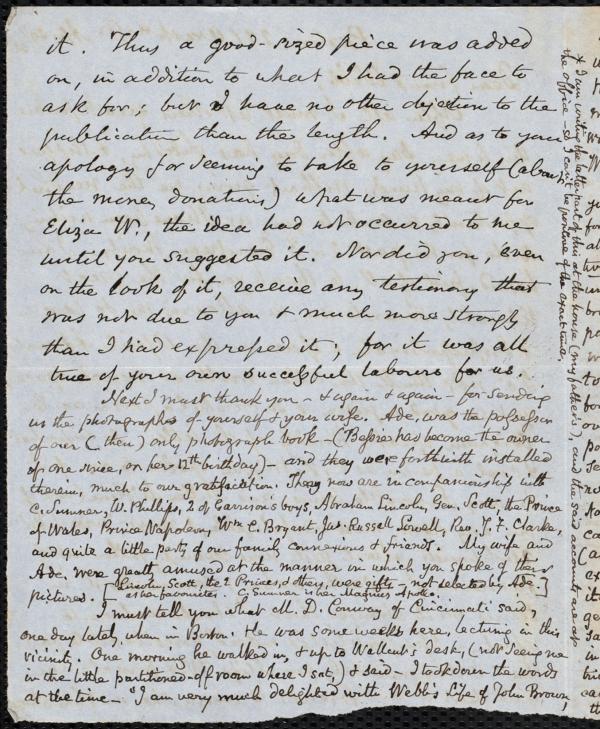 it. Thus a good-sized piece was added
on, in addition to what I had the face to
ask for; but I have no other objection to the
publication than the length. And as to your
apology for seeming to take to yourself (about
the money donations) what was meant for
Eliza W., the idea had not occurred to me
until you suggested it. Nor did you, even
on the look of it, receive any testimony that
was not due to you & much more strongly
than I had expressed it; for it was all
true of your own successful labours for us.
Next I must thank you - & again & again - for sending
us the photographs of yourself & your wife. Ade. was the possessor
of our (then) only photograph book - (Bessie has become the owner
of one since, on her 12th birthday) - and they were forthwith installed
therein, much to our gratification. They now are in companionship with
C. Sumner, W. Phillips, 2 of Garrison's boys, Abraham Lincoln, Gen. Scott, the Prince
of Wales, Prince Napoleon, Wm. C. Bryant, Jas. Russell Lowell, Rev. J. F. Clarke,
and quite a little party of our family connexions & friends. My wife and
Ade. were greatly amused at the manner in which you spoke of their
pictures. [Lincoln, Scott, the 2 Princes, & others, were gifts - not selected by Ade.
as her favourites. C. Sumner is her Magnus Apollo.]
I must tell you what M. D. Conway of Cincinnati said,
one day lately, when in Boston. He was some weeks here, lecturing in this
vicinity. One morning he walked in, & up to Wallcut's desk, (not seeing me
in the little partitioned-off room where I sat,) & said - I took down the words
at the time - "I am very much delighted with Webb's Life of John Brown,
& I am writing the latter part of this at the house (my father's), and the said accounts are at
the office - so I can't be positive of the exact time.